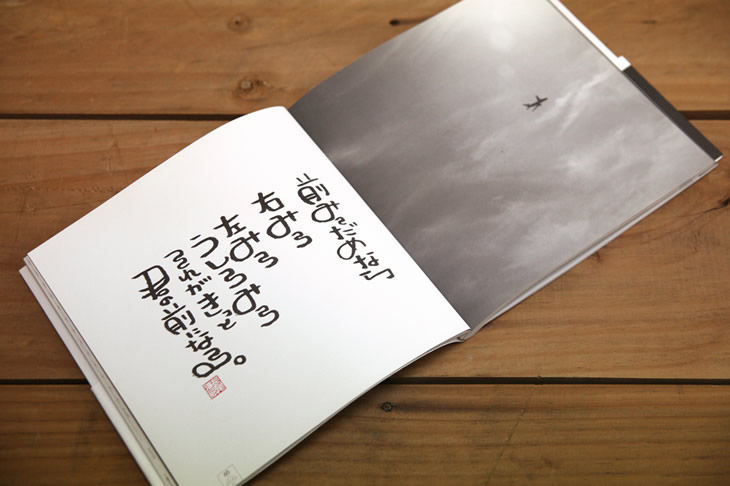 前みてだめなら
右みろ
左みろ
うしろみろ
それがきっと
君の前になる。